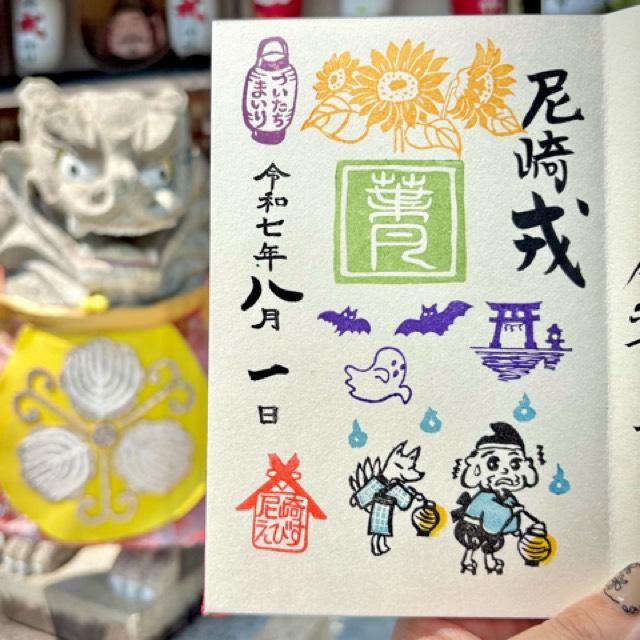 尼崎戎
ついたち
まいり
葉月
令和七年八月一日
尼崎
えびす